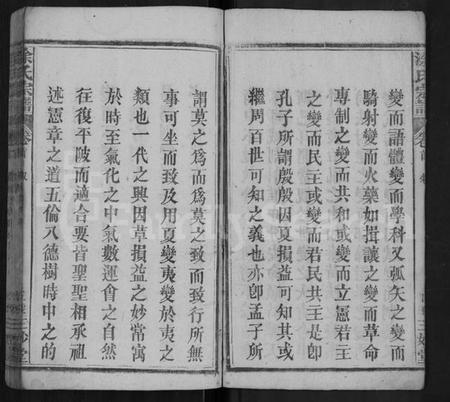 變而語體變而學科又弧矢之變而
騎射變而火藥如揖讓之變而草命
專制之變而共和或變而立憲若王
之變而民主或變而若民共主是卽
孔子所謂殷因夏損益可知其或
繼周百世可知之義也亦卽孟子所
謂莫之爲而爲莫之致而致行所無
事可坐而致及用夏變夷變於夷之
類也一代之興因草損益之妙常寓
於時至氣化之中氣數運會之自然
往復平陂而適合要皆聖聖相承祖
述憲章之道五倫八德樹時中之的
涂氏宗譜
卷